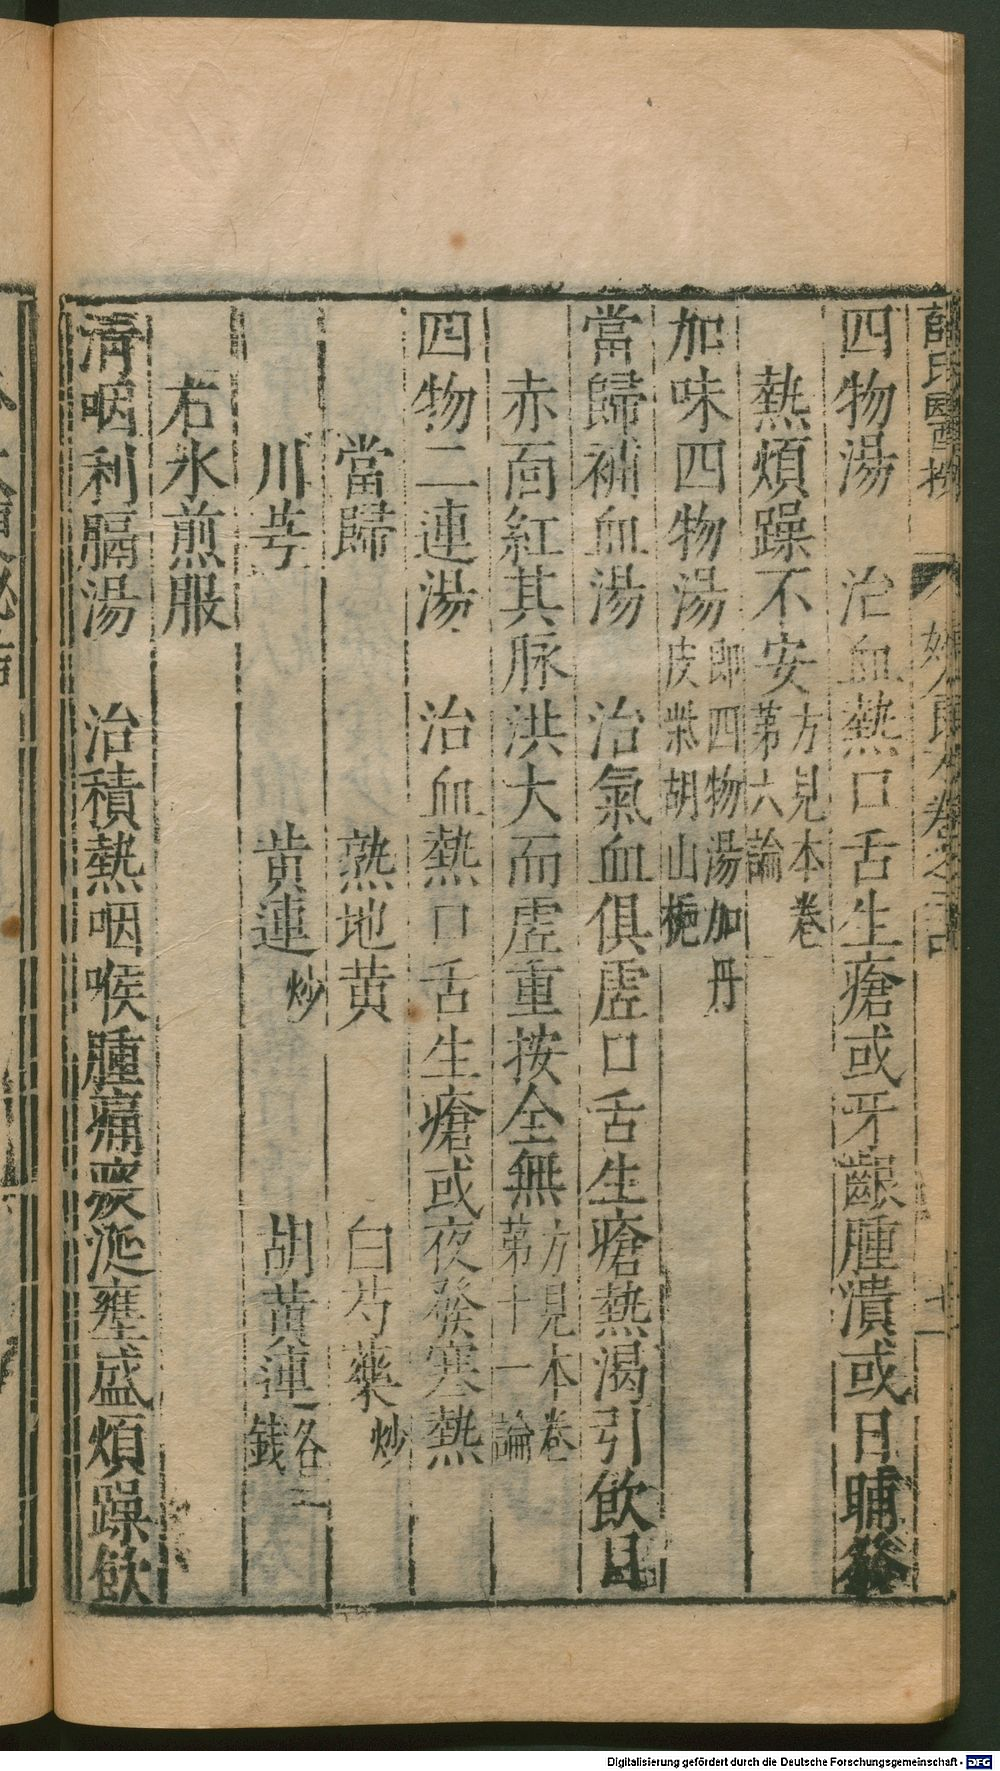 四物湯　治血熱口舌生瘡或牙齦腫潰或日晡發
熱煩躁不安方見本卷第六論
加味四物湯即四物湯加丹皮柴胡山梔
當歸補血湯　治氣血俱虛口舌生瘡熱渴引飲目
赤面紅其脉洪大而虛重按全無方見本卷第十一論
四物二連湯　治血熱口舌生瘡或夜發寒熱
當歸　熟地黄　白芍藥炒
川芎　黄連炒　胡黄連各三錢
右水煎服
清咽利膈湯　治積熱咽喉腫痛痰涎壅盛煩躁飲
Digitalisierung gefördert durch die Deutsche Forschungsgemeinschaft - DFG